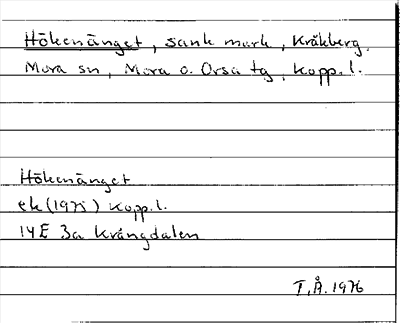 Hökenänget, sank mark, Kråkberg,
Mora sn, Mora o. Orsa tg, Kopp. l.
Hökenänget
ek (1975) Kopp. l.
14E 3a Krångdalen
T.Å. 1976